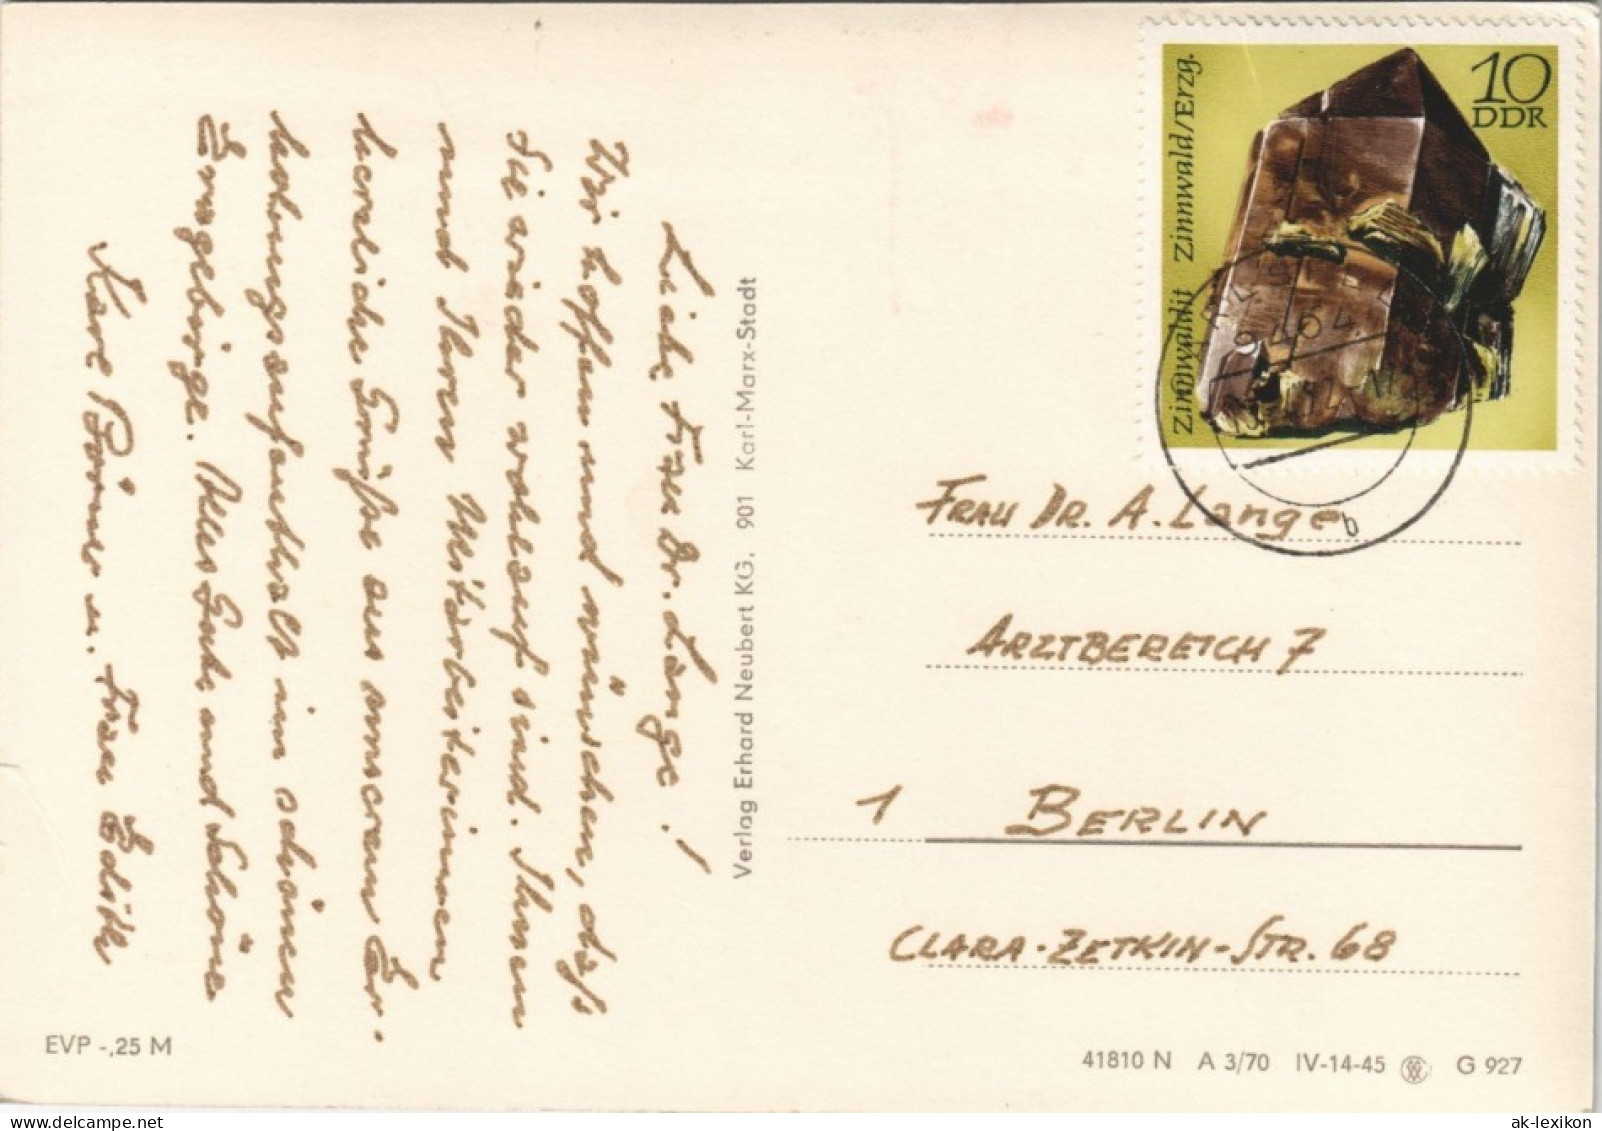 Liebe Frau Dr. Lange!
Wir hoffen und wünschen, daß
Sie wieder wohlauf sind. Ihnen
und Ihren Mitarbeiterinnen
herzliche Grüße aus unserem Er-
holungsaufenthalt im schönen
Erzgebirge. Alles Gute und Schöne
Börner u. Frau Edith
EVP -,25 M
Verlag Erhard Neubert KG, 901 Karl-Marx-Stadt
10
DDR
Zinnwaldit Zinnwald/Erzg.
9404
b
FRAU DR. A. Lange
ARZTBEREICH 7
1 BERLIN
CLARA-ZETKIN-STR. 68
41810 N A 3/70 IV-14-45 G 927
ak-lexikon.de